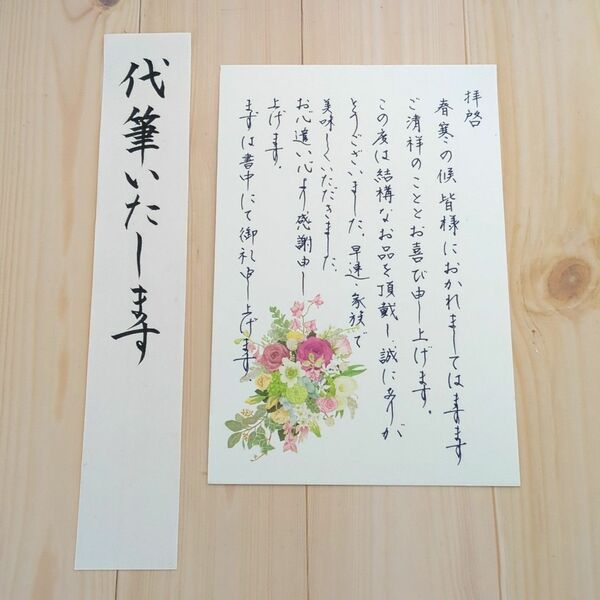 拝啓
春寒の候 皆様におかれましては ますます
ご清祥のこととお喜び申し上げます。
この度は結構なお品を頂戴し、誠にありが
とうございました。早速、家族で
美味しくいただきました。
お心遣い心より感謝申し
上げます。
まずは書中にて御礼申し上げます
代筆いたします